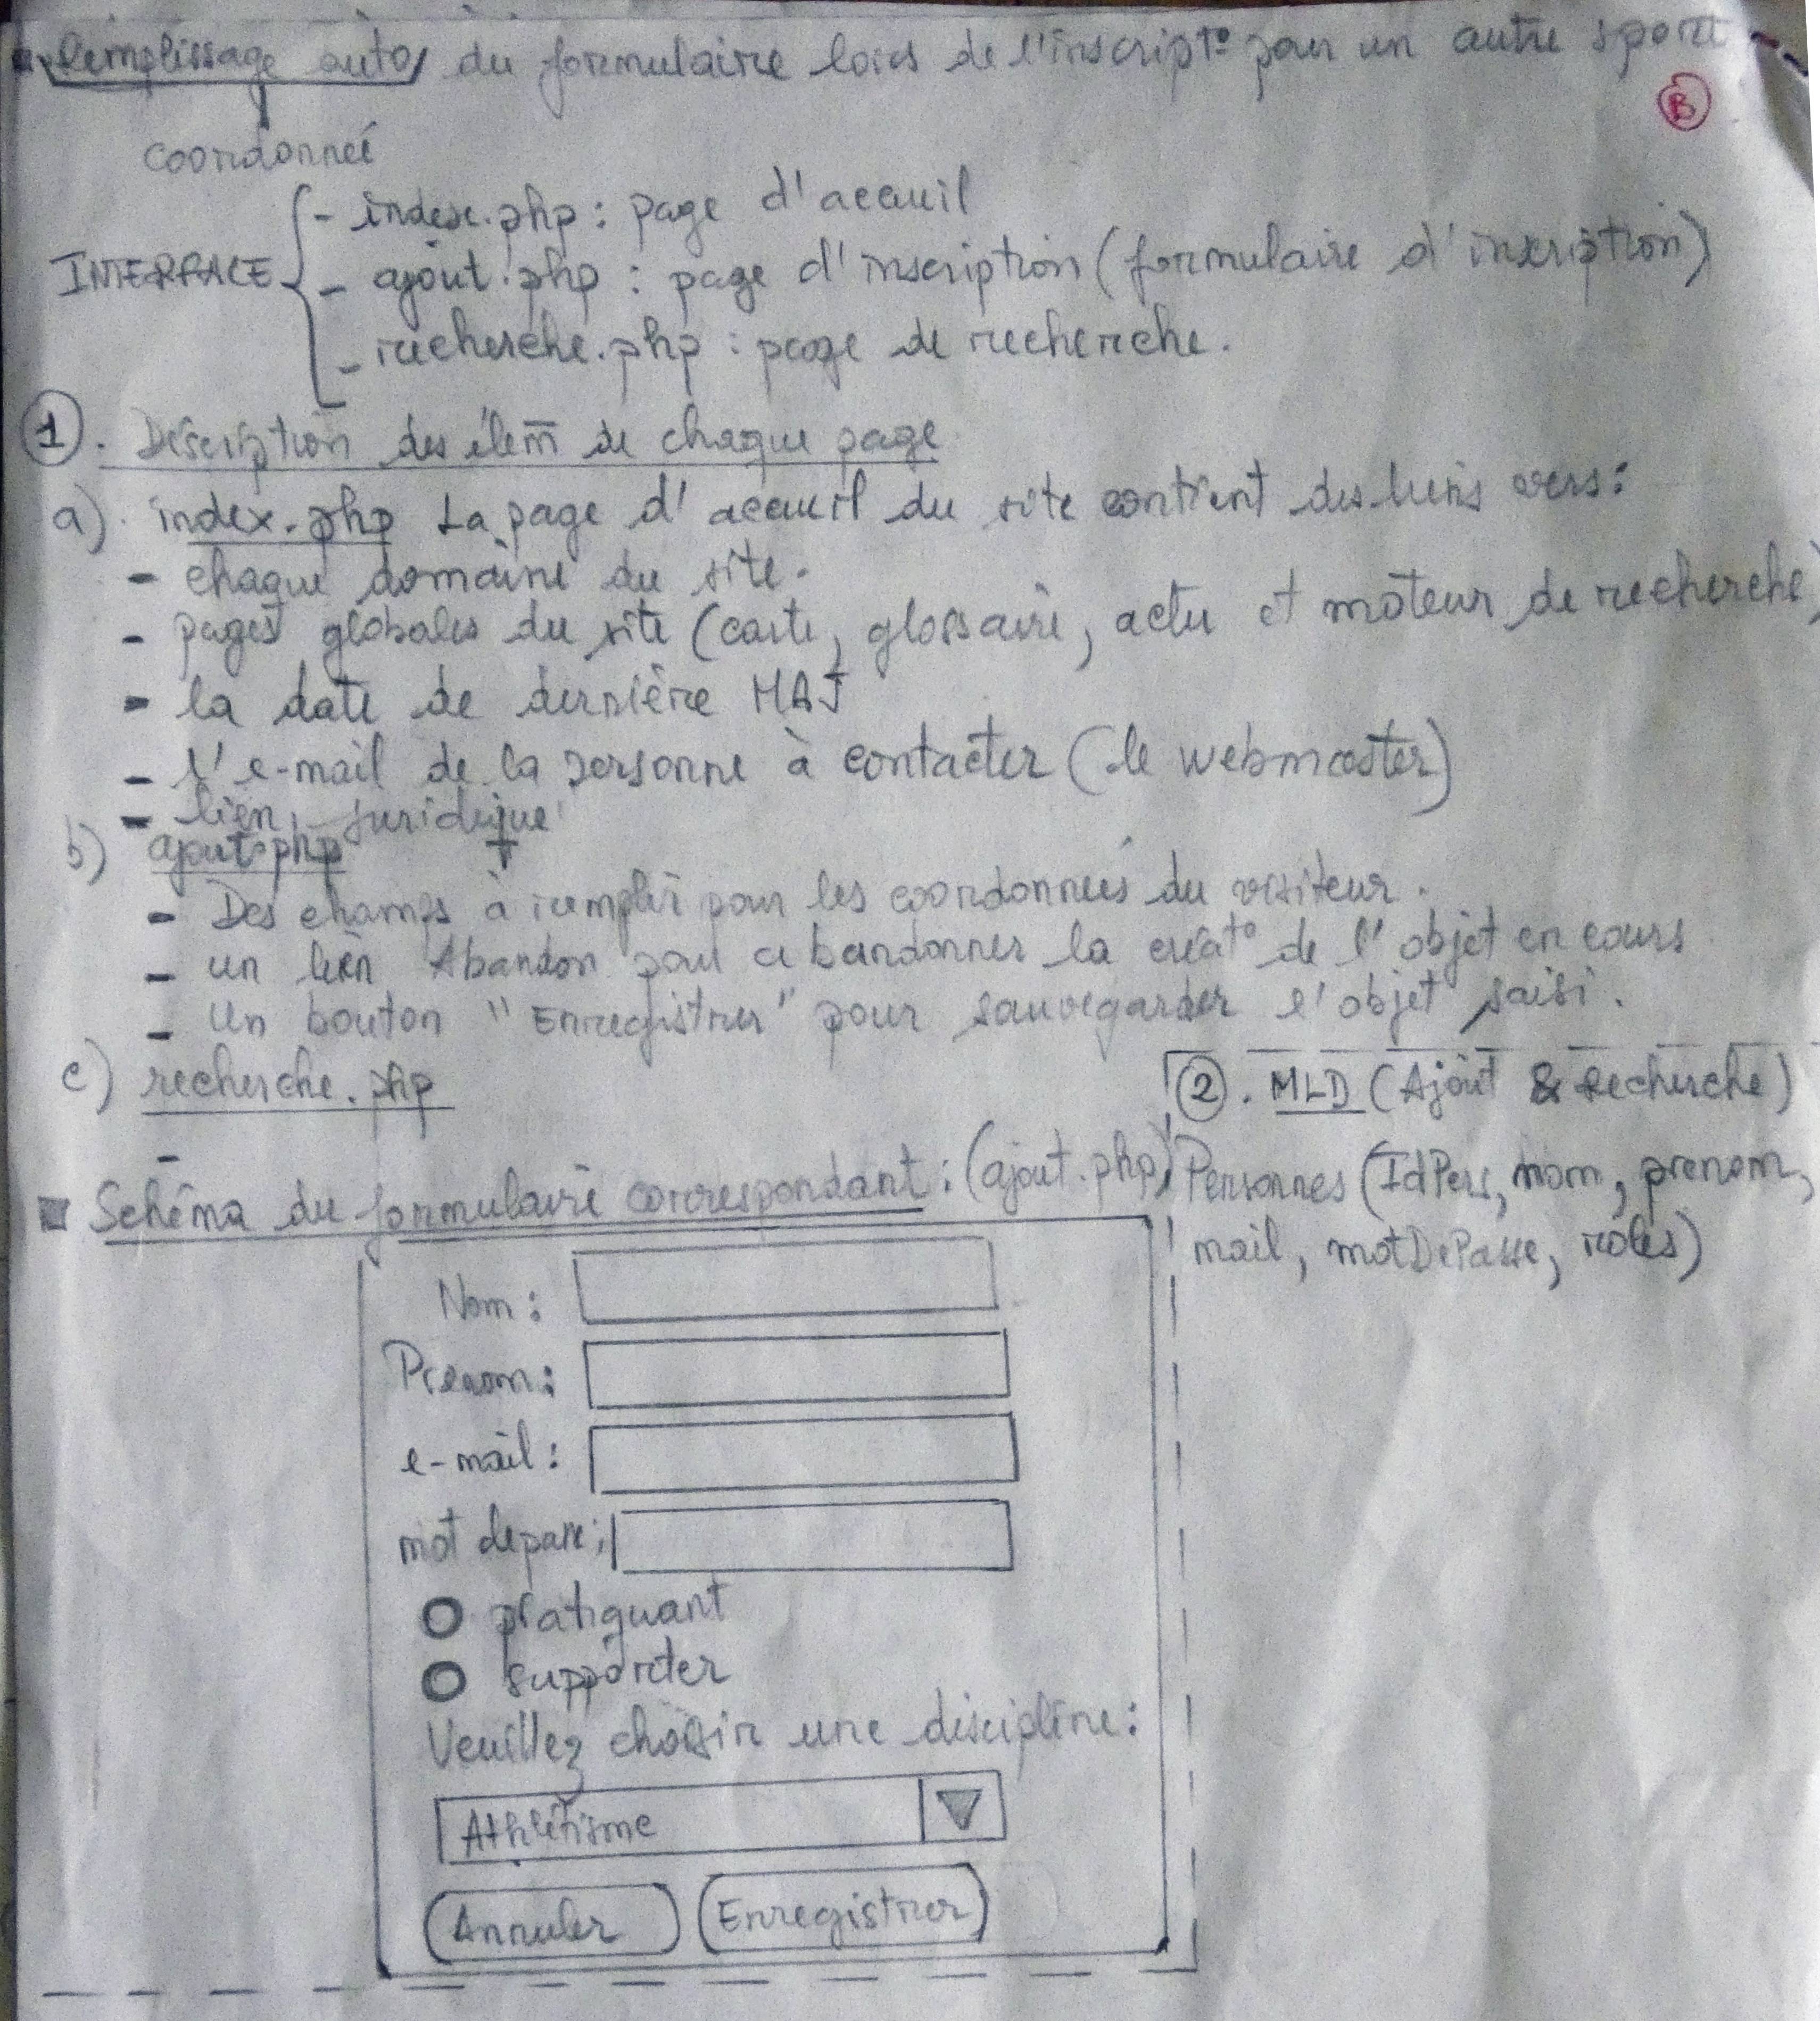 Remplissage auto du formulaire lors de l'inscript° pour un autre sport
B
coordonneé
INTERFACE
- index.php : page d'accuil
- ajout.php : page d'inscription (formulaire d'inscription)
- recherche.php : page de recherche.
1. Description des élem de chaque page
a) index.php La page d'accuil du site contient des liens vers :
- chaque domaine du site.
- pages globales du site (carte, glossaire, actu et moteur de recherche)
- la date de dernière MAJ
- l'e-mail de la personne à contacter (le webmaster)
- lien juridique
b) ajout.php
- Des champs à remplir pour les coordonnées du visiteur.
- un lien Abandon pour abandonner la créat° de l'objet en cours
- Un bouton "Enregistrer" pour sauvegarder l'objet saisi.
c) recherche.php
-
2. MLD (Ajout & Recherche)
Personnes (IdPers, nom, prenom,
mail, motDePasse, roles)
Schéma du formulaire correspondant : (ajout.php)
Nom :
Prenom :
e-mail :
mot de passe :
pratiquant
supporter
Veuillez choisir une discipline :
Athlétisme
Annuler
Enregistrer